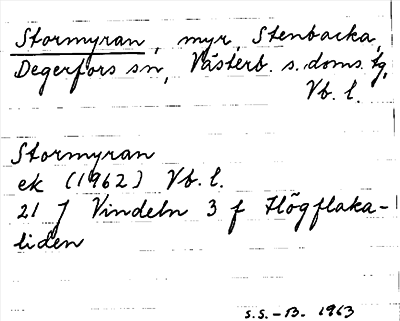 Stormyran, myr, Stenbacka,
Degerfors sn, Västerb. s. doms. tg,
Vb. l.
Stormyran
ek (1962) Vb. l.
21 J Vindeln 3 f Högflaka-
liden
s.s. - B. 1963